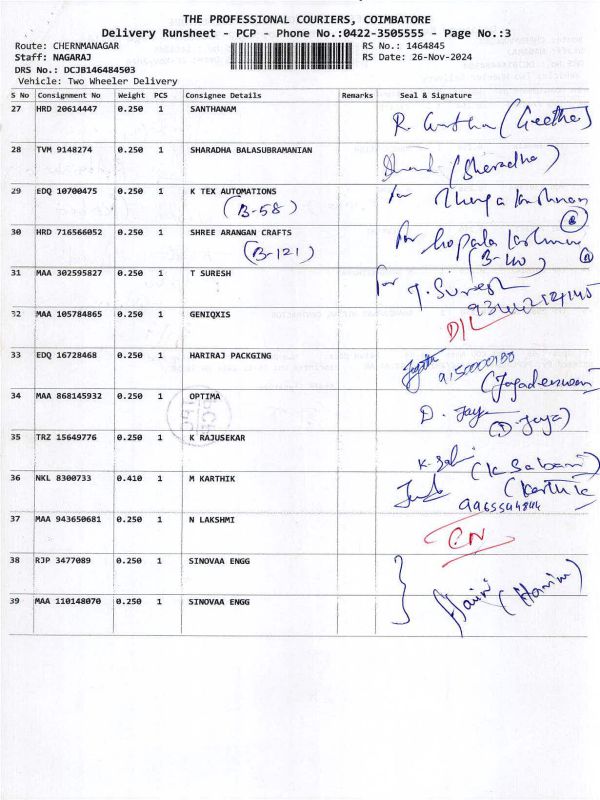 THE PROFESSIONAL COURIERS, COIMBATORE
Delivery Runsheet - PCP - Phone No.:0422-3505555 - Page No.:3
Route: CHERNMANAGAR RS No.: 1464845
Staff: NAGARAJ RS Date: 26-Nov-2024
DRS No.: DCJB146484503
Vehicle: Two Wheeler Delivery
S No Consignment No Weight PCS Consignee Details Remarks Seal & Signature
27 HRD 20614447 0.250 1 SANTHANAM (Geetha)
28 TVM 9148274 0.250 1 SHARADHA BALASUBRAMANIAN (Sharadha)
29 EDQ 10700475 0.250 1 K TEX AUTOMATIONS for
(B-58)
30 HRD 716566052 0.250 1 SHREE ARANGAN CRAFTS for Gopala
(B-121) (B-40)
31 MAA 302595827 0.250 1 T SURESH for T. Suresh
32 MAA 105784865 0.250 1 GENIQXIS D/L
33 EDQ 16728468 0.250 1 HARIRAJ PACKGING
(Jagadeeswari)
34 MAA 868145932 0.250 1 OPTIMA D. Jaya (D. Jaya)
35 TRZ 15649776 0.250 1 K RAJUSEKAR
(K Sabari)
36 NKL 8300733 0.410 1 M KARTHIK (Karthik)
9965544844
37 MAA 943650681 0.250 1 N LAKSHMI CN
38 RJP 3477089 0.250 1 SINOVAA ENGG
39 MAA 110148070 0.250 1 SINOVAA ENGG